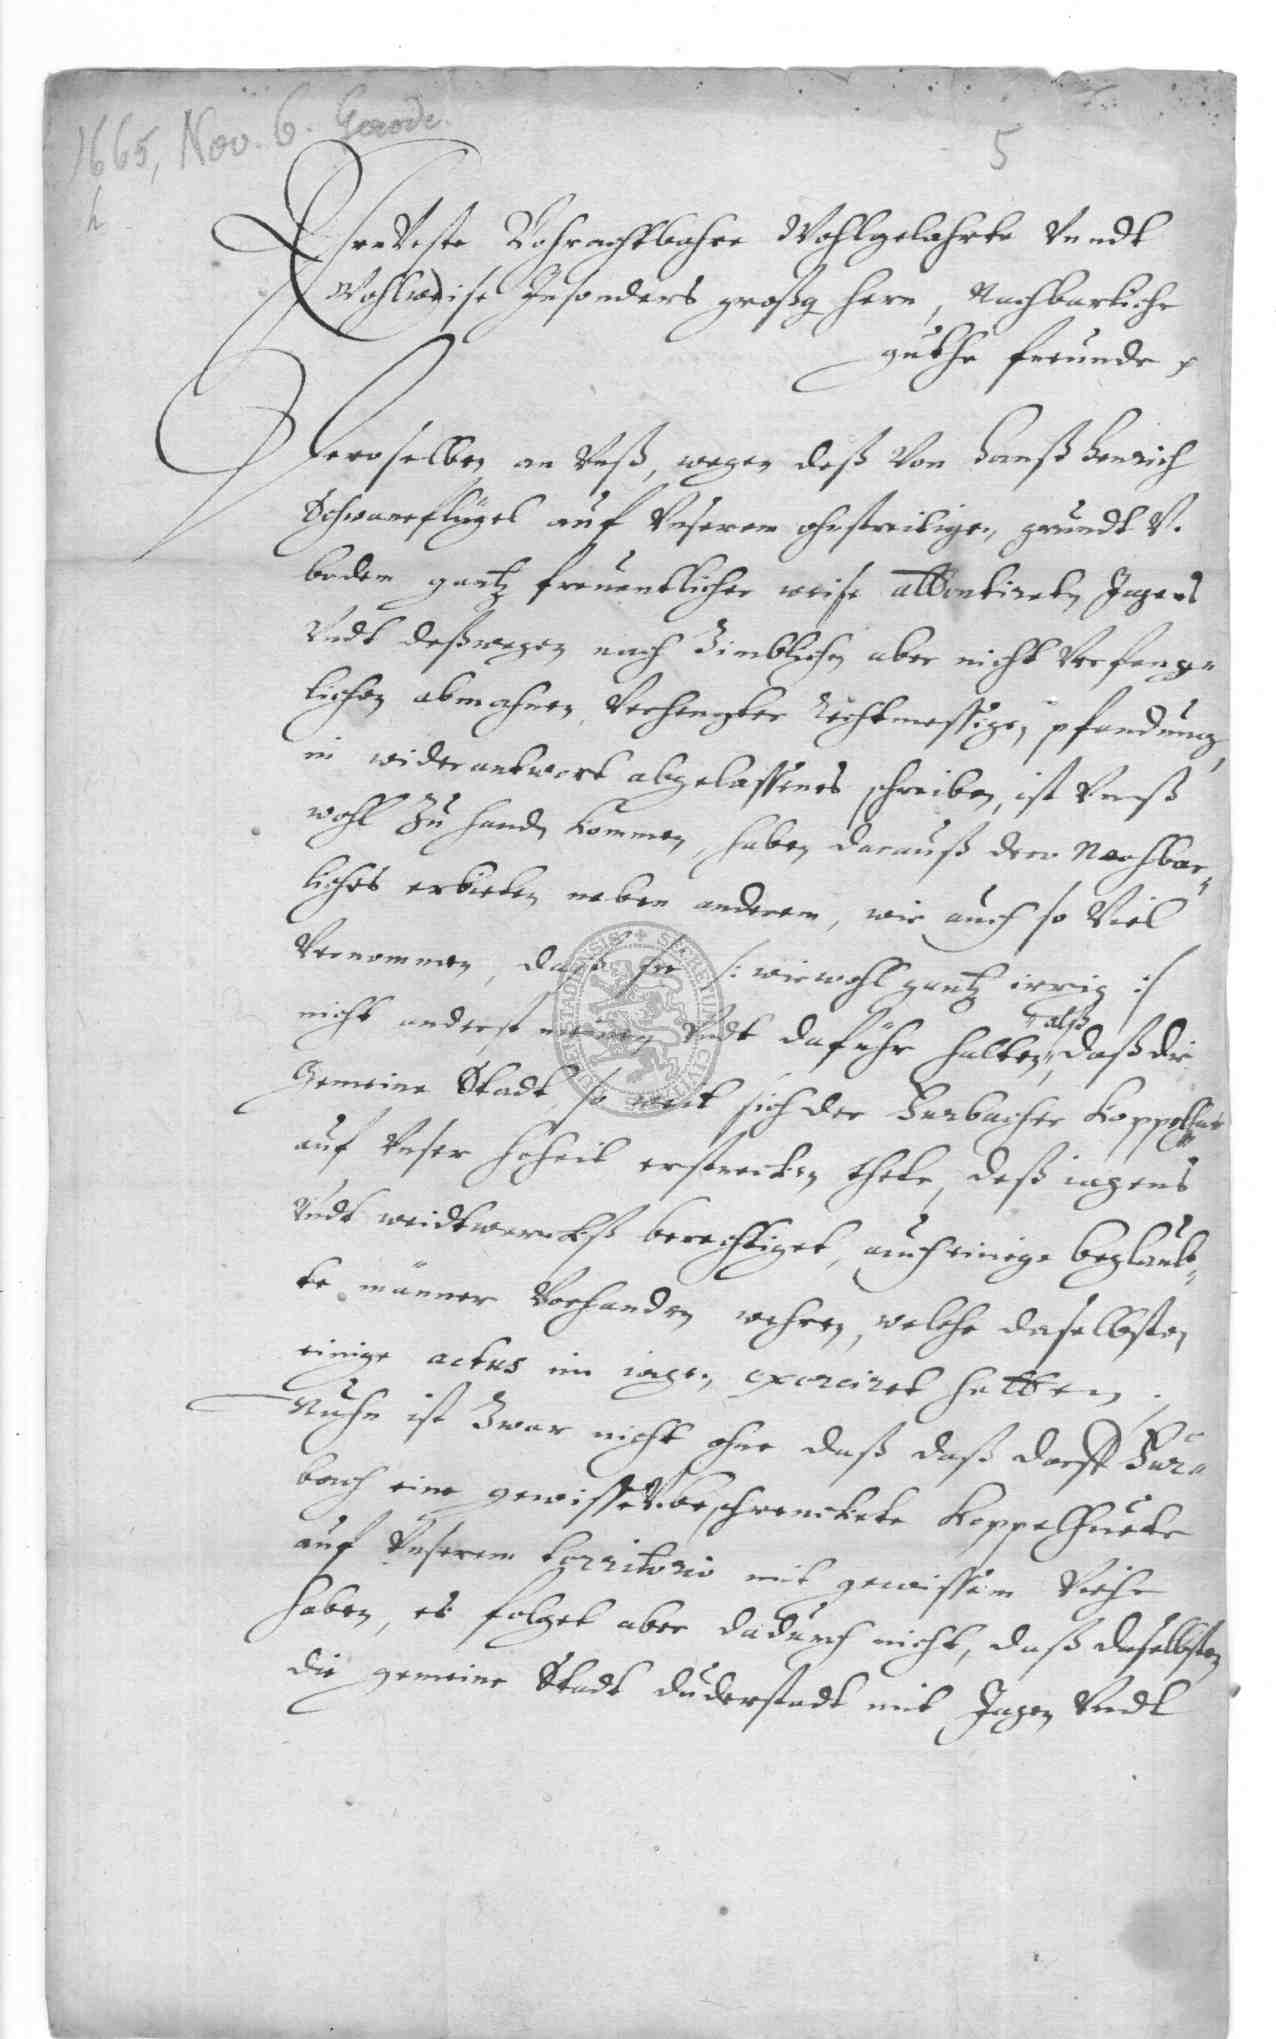 1665, Nov. 6. Gerode.
5
h
EhrnVeste Vohrachtbahre Wohlgelahrte Vndt
Wohlweise Insonders großg. hern, Nachbarliche
guthe freunde
Deroselben an Vnß, wegen deß Von Hanß Henrich
Schwaneflügel auf Vnserem ohnstreitigen grundt V.
bodem gantz freuentlicher weise attentireten Jagens
Vndt deßwegen nach Zimblichen aber nicht Verfeng-
lichen abmahnen Verhengter Rechtmessigen pfandung,
in widerantwort abgelassenes schreiben, ist Vnß
wohl Zu handen kommen, haben darauß dero Nachbar-
liches erbieten neben anderem, wie auch so Viel
Vernommen, dass sie /: wiewohl gantz irrig :/
nicht anderst meinen Vndt dafuhr halten, alß daß die
Gemeine Stadt, so weit sich der Furbacher Koppelhut
auf Vnser hoheit erstrecken thete, deß iagens
Vndt weidtwercks berechtiget, auch einige beglaub-
te männer Vorhanden wehren, welche daselbsten
einige actus im iagen exerciret hetten.
Nuhn ist Zwar nicht ohne daß daß dorff Fur-
bach eine gewisse V. beschrenckete Koppelhuete
auf Vnserem territorio mit gewissem Viehe
haben, es folget aber dadurch nicht, daß daselbsten
die gemeine Stadt duderstadt mit Jagen Vndt